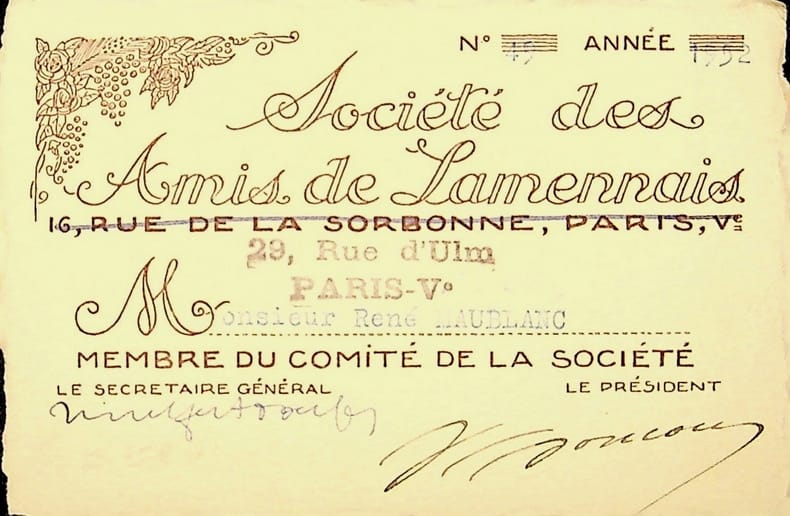 N° 49 ANNÉE 1952
Société des
Amis de Lamennais
16, RUE DE LA SORBONNE, PARIS, Ve
29, Rue d'Ulm
PARIS-V°
Monsieur René MAUBLANC
MEMBRE DU COMITÉ DE LA SOCIÉTÉ
LE SECRETAIRE GÉNÉRAL LE PRÉSIDENT